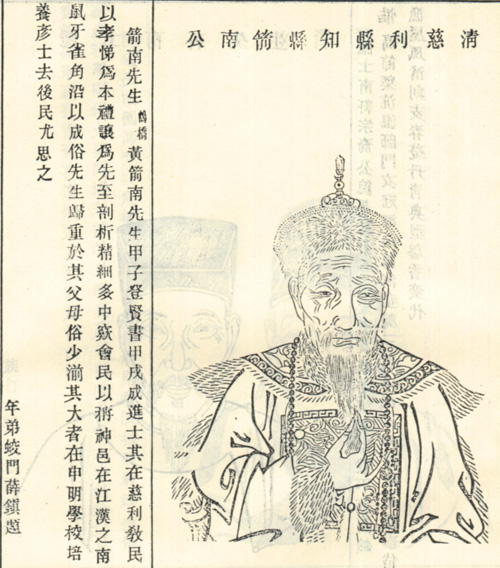 清慈利縣知縣箭南公
箭南先生 鶴橋 黃箭南先生甲子登賢書甲戌成進士其在慈利敎民
以孝悌爲本禮讓爲先至剖析精細多中窾會民以神邑在江漢之南
鼠牙雀角沿以成俗先生歸重於其父母俗少湔其大者在申明學校培
養彥士去後民尤思之
年弟蛟門薛鎭題